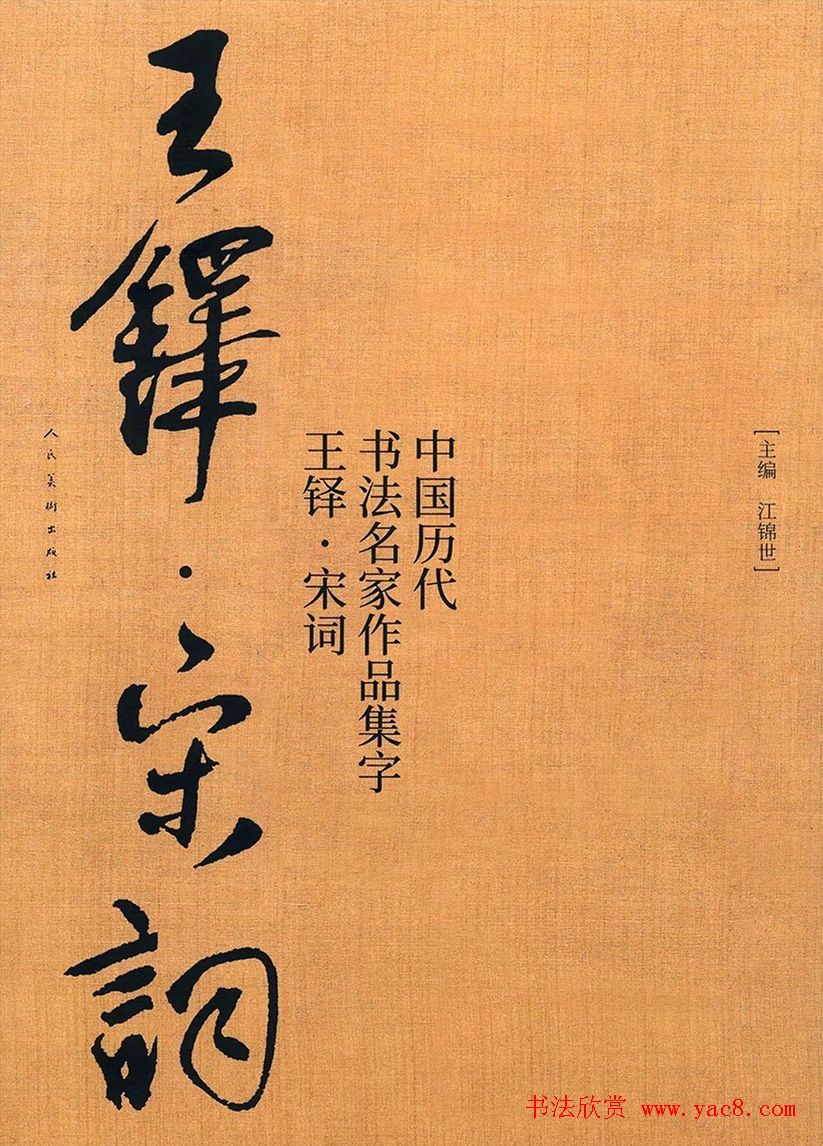 [主编 江锦世]
中国历代
书法名家作品集字
王铎·宋词
王鐸·宋詞
人民美術出版社
书法欣赏 www.yac8.com